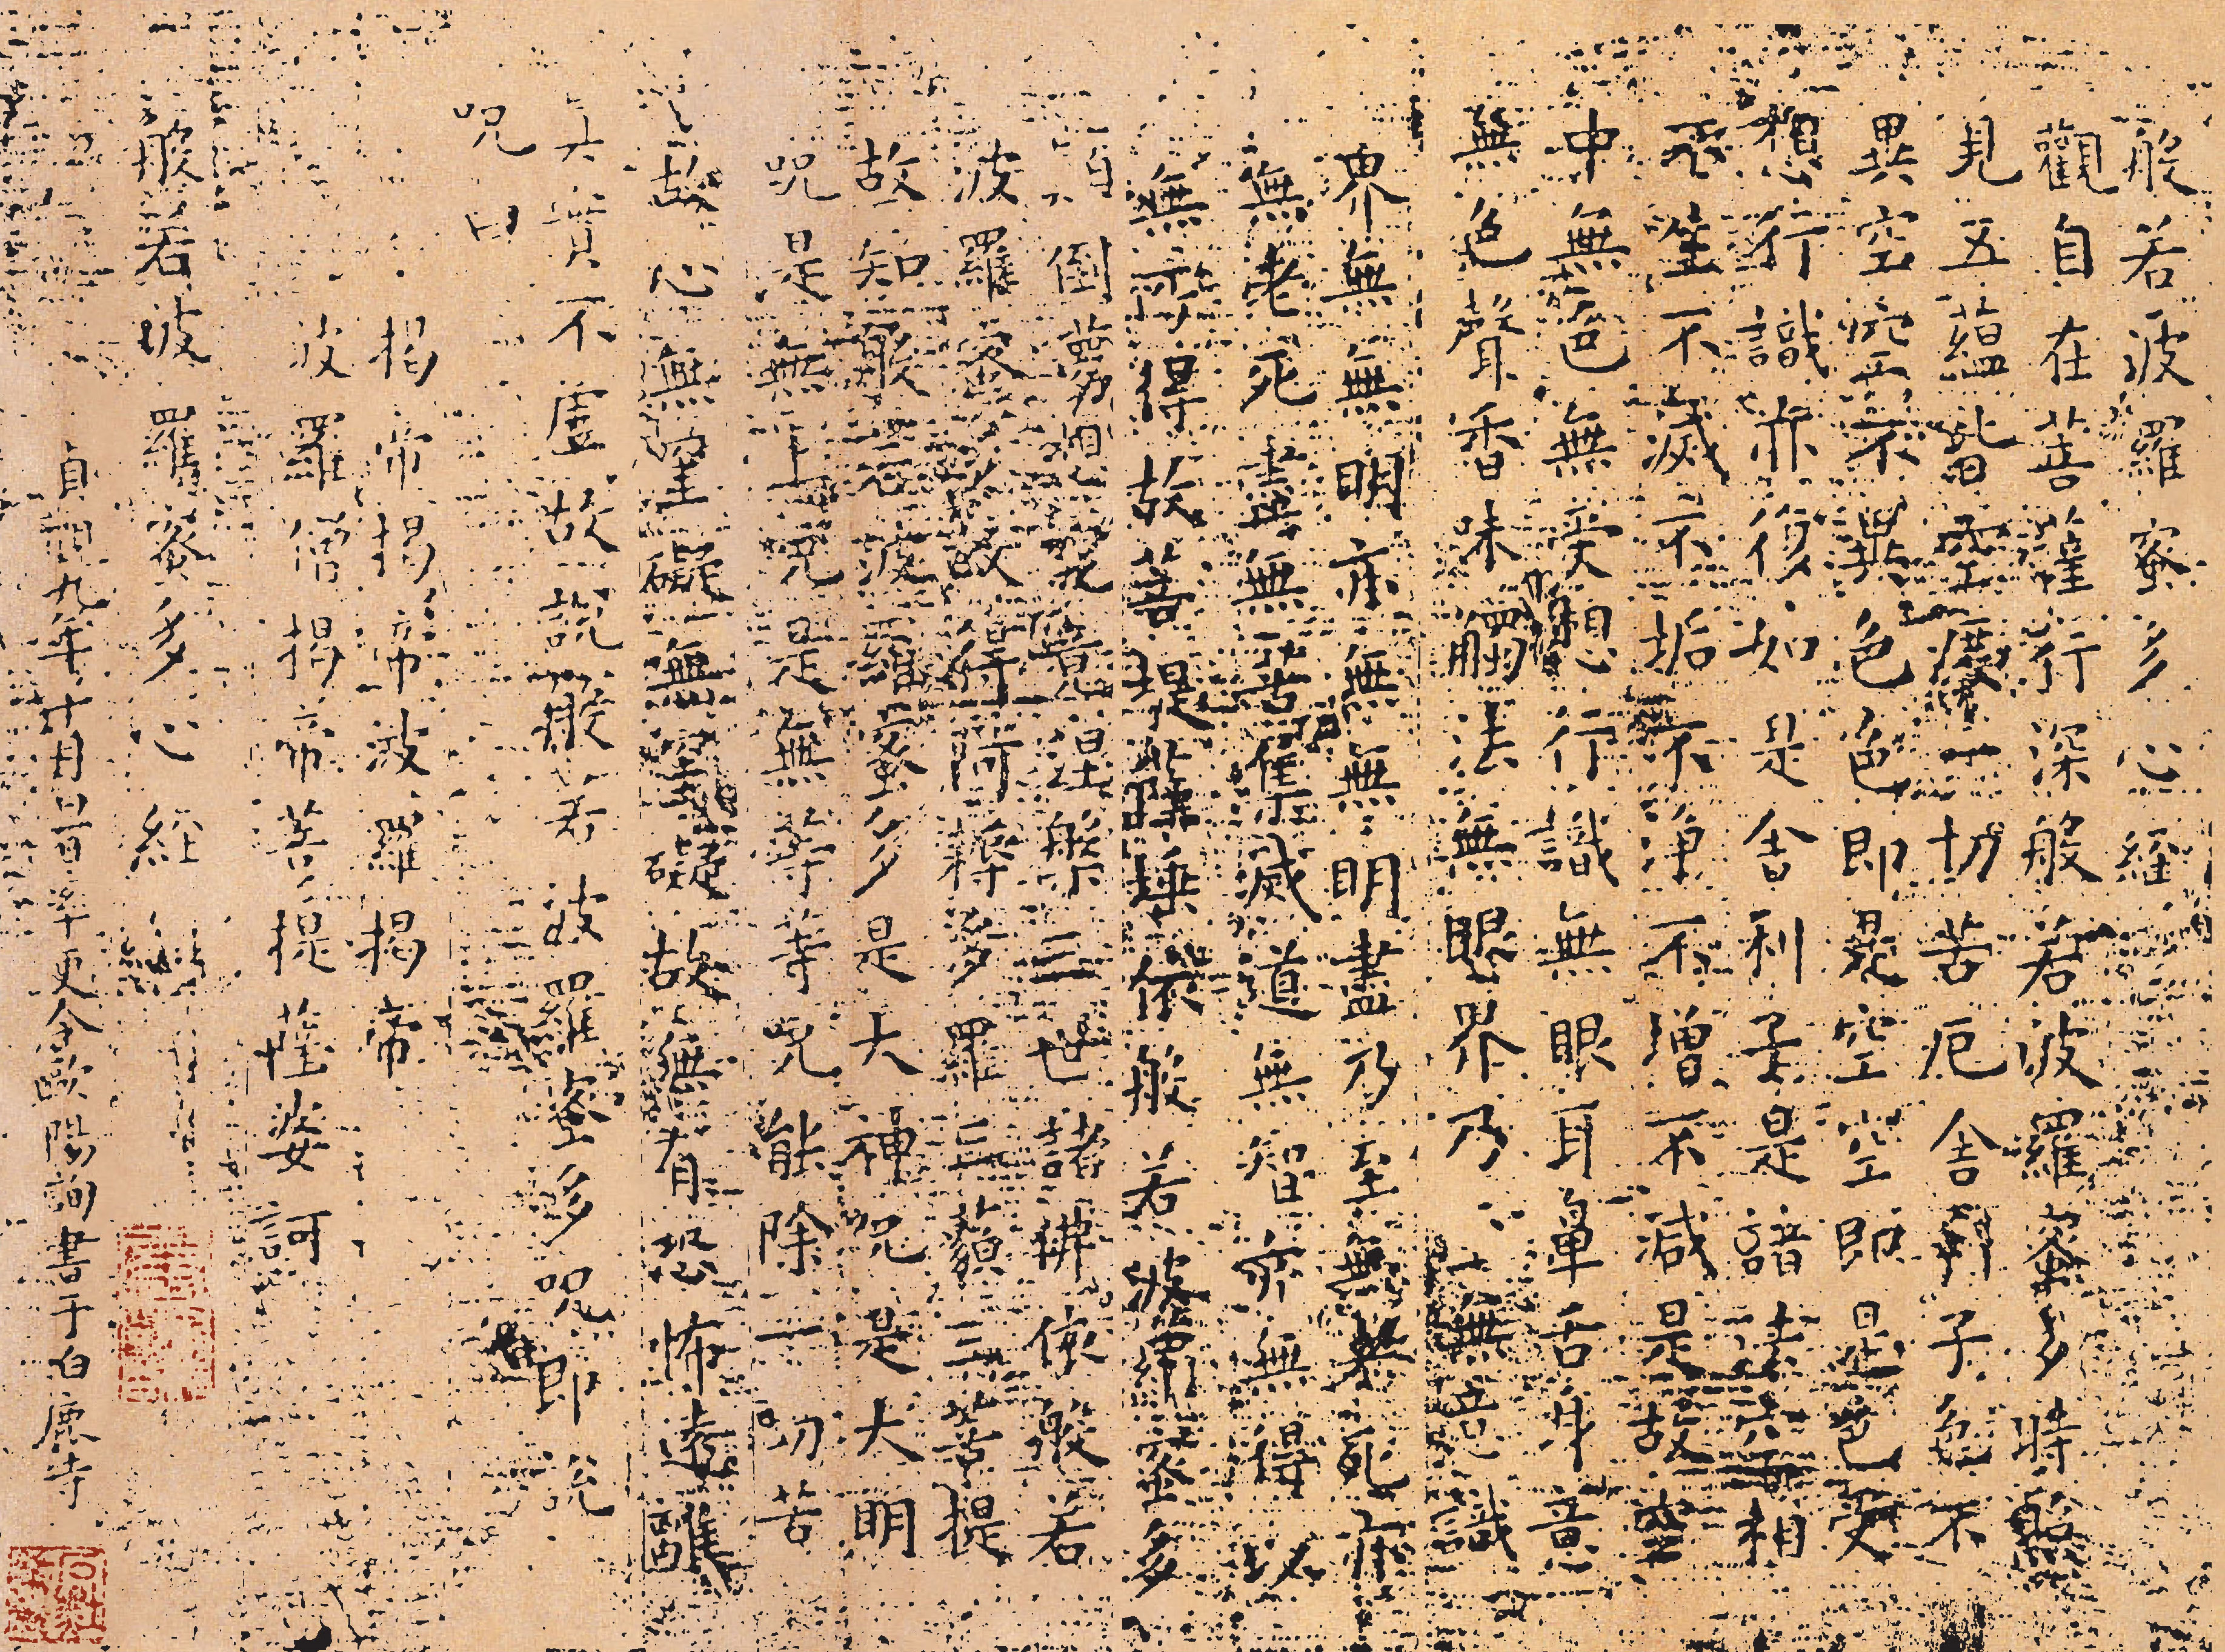 般若波羅蜜多心經
觀自在菩薩行深般若波羅蜜多時照
見五蘊皆空度一切苦厄舍利子色不
異空空不異色色即是空空即是色受
想行識亦復如是舍利子是諸法空相
不生不滅不垢不淨不增不減是故空
中無色無受想行識無眼耳鼻舌身意
無色聲香味觸法無眼界乃至無意識
界無無明亦無無明盡乃至無老死亦
無老死盡無苦集滅道無智亦無得以
無所得故菩提薩埵依般若波羅蜜多
顛倒夢想究竟涅槃三世諸佛依般若
波羅蜜多故得阿耨多羅三藐三菩提
故知般若波羅蜜多是大神咒是大明
咒是無上咒是無等等咒能除一切苦
故心無罣礙無罣礙故無有恐怖遠離
真實不虛故說般若波羅蜜多咒即說
咒曰
揭帝揭帝波羅揭帝
波羅僧揭帝菩提薩婆訶
般若波羅蜜多心經
貞觀九年十月旦日率更令歐陽詢書于白鹿寺